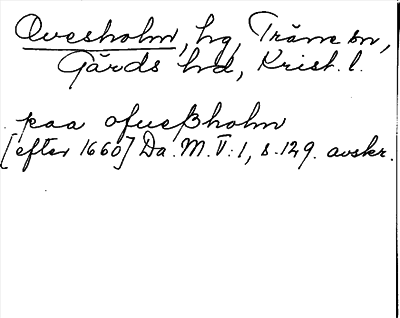 Ovesholm, hg, Träne sn,
Gärds hd, Krist. l.
paa ofueßholm
[efter 1660] Da. M. V:1, s. 129. avskr.